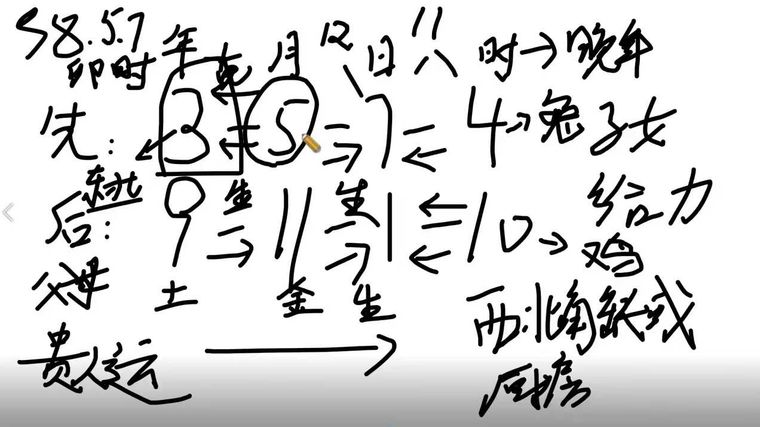 58.5.7
卯时 年 克 月 12 日 11 八 时→晚年
先: 3 ← 5 = 7 = 4→兔子女
东北
后: 9 生 11 生 1 = 10→鸡 给力
父母 土 金 生 西北角缺或
贵人运 → 厨房